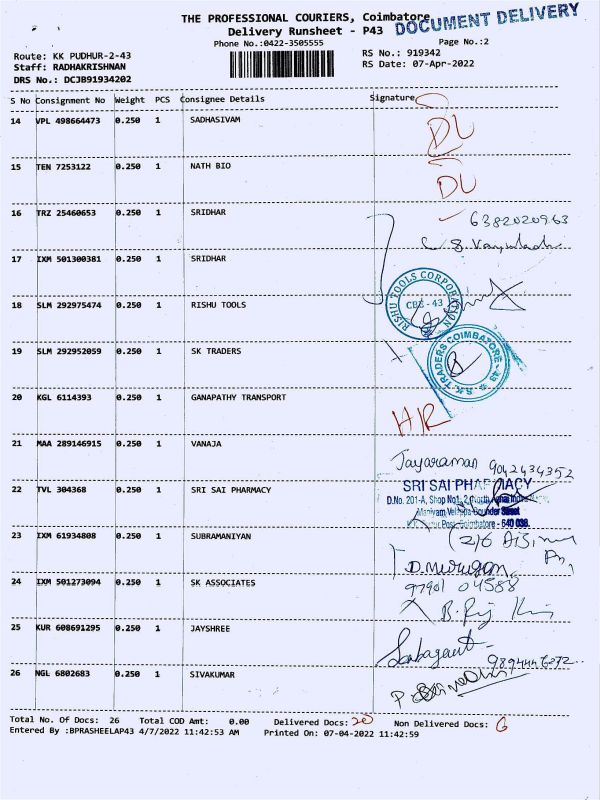 THE PROFESSIONAL COURIERS, Coimbatore
DOCUMENT DELIVERY
Delivery Runsheet - P43
Phone No.:0422-3505555
Page No.:2
Route: KK PUDHUR-2-43
RS No.: 919342
Staff: RADHAKRISHNAN
RS Date: 07-Apr-2022
DRS No.: DCJB91934202
S No Consignment No Weight PCS Consignee Details Signature
14 VPL 498664473 0.250 1 SADHASIVAM DL
15 TEN 7253122 0.250 1 NATH BIO DL
16 TRZ 25460653 0.250 1 SRIDHAR 6382020963
17 IXM 501300381 0.250 1 SRIDHAR
RISHU TOOLS CORPORATION
CBE - 43
18 SLM 292975474 0.250 1 RISHU TOOLS
19 SLM 292952059 0.250 1 SK TRADERS
S.K. TRADERS COIMBATORE-43
20 KGL 6114393 0.250 1 GANAPATHY TRANSPORT
21 MAA 289146915 0.250 1 VANAJA
Jayaraman 9042434352
22 TVL 304368 0.250 1 SRI SAI PHARMACY
SRI SAI PHARMACY
D.No. 201-A, Shop No1, 2
Street
Post, Coimbatore - 640 038.
23 IXM 61934808 0.250 1 SUBRAMANIYAN
D. Murugan
24 IXM 501273094 0.250 1 SK ASSOCIATES
97901 04588
25 KUR 608691295 0.250 1 JAYSHREE
26 NGL 6802683 0.250 1 SIVAKUMAR
Total No. Of Docs: 26 Total COD Amt: 0.00 Delivered Docs: 20 Non Delivered Docs: 6
Entered By :BPRASHEELAP43 4/7/2022 11:42:53 AM Printed On: 07-04-2022 11:42:59